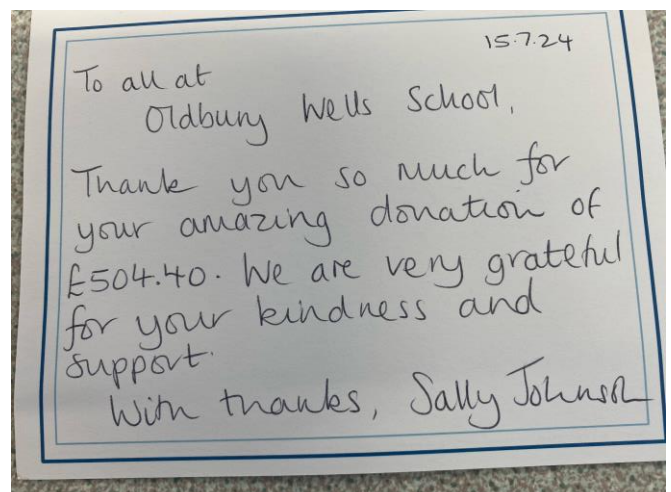 15.7.24
To all at
Oldbury Wells School,
Thank you so much for
your amazing donation of
£504.40. We are very grateful
for your kindness and
support.
With thanks, Sally Johnson